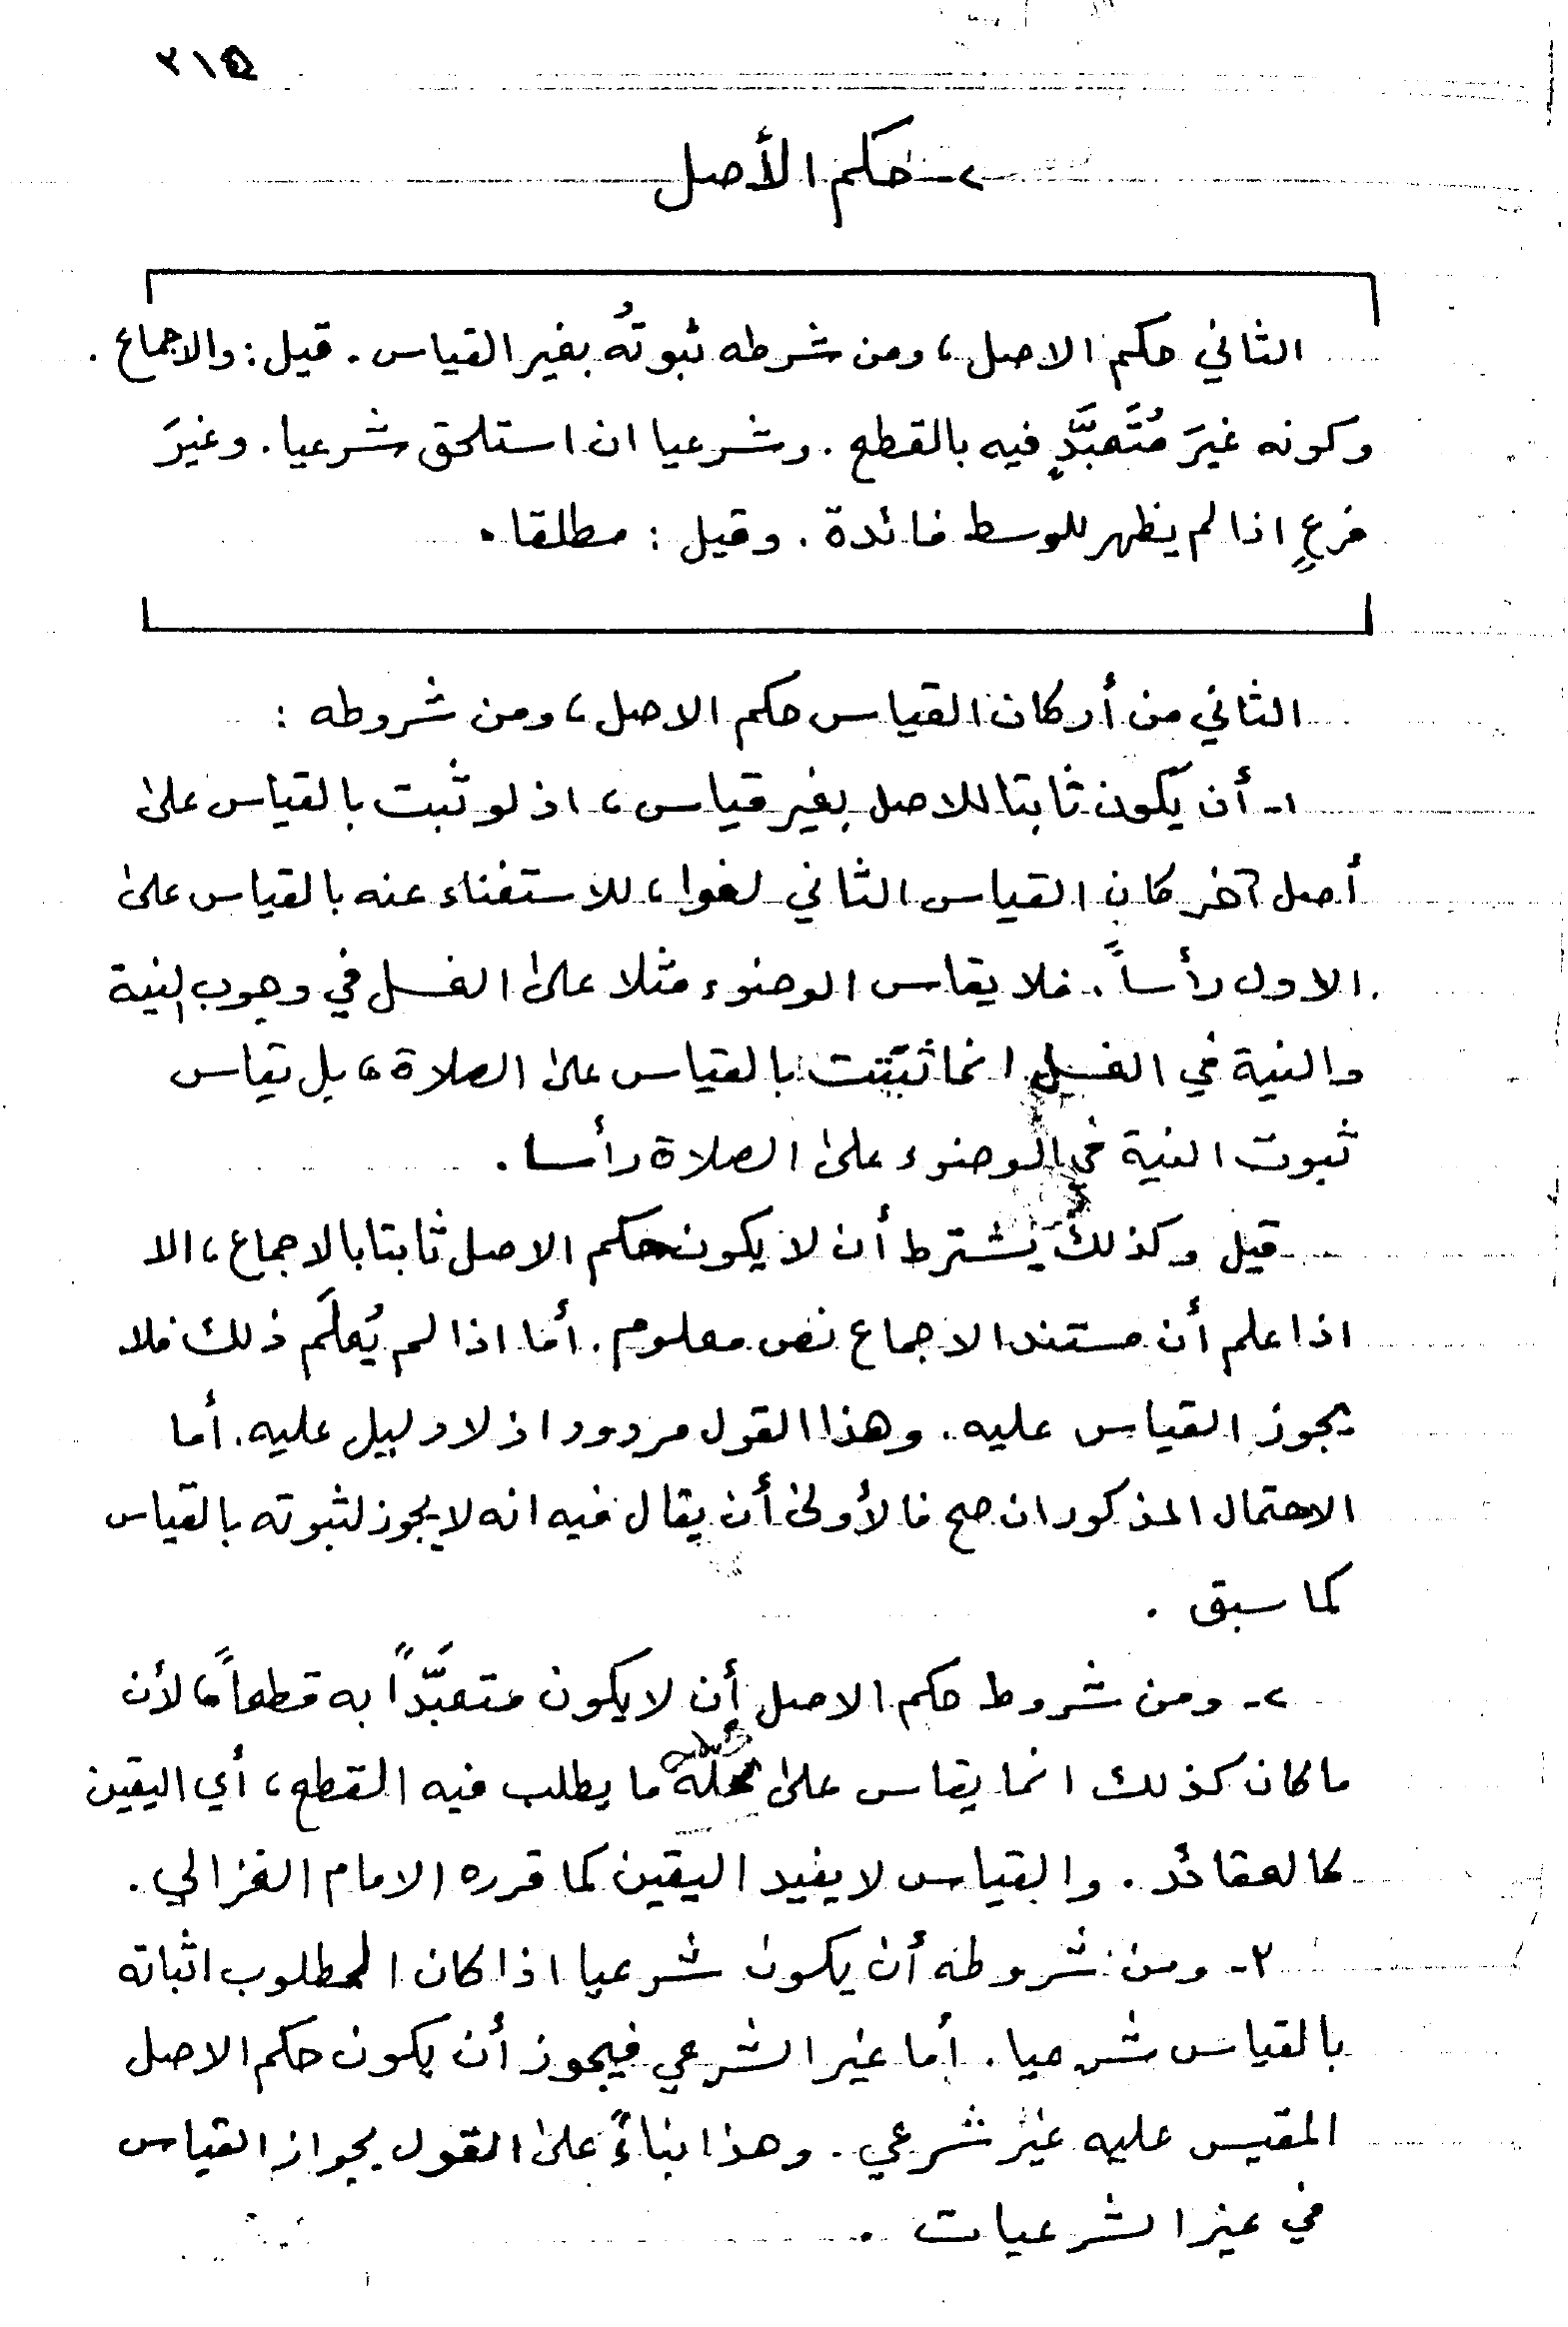 ٢١٥
٢- حكم الأصل
الثاني حكم الاصل، ومن شرطه ثبوتُه بغير القياس. قيل: والاجماع.
وكونه غيرَ مُتَعبَّدٍ فيه بالقطع. وشرعيا ان استلحق شرعيا. وغيرَ
فرعٍ اذا لم يظهر للوسط فائدة. وقيل: مطلقا.
الثاني من أركان القياس حكم الاصل، ومن شروطه:
١- أن يكون ثابتا للاصل بغير قياس، اذ لو ثبت بالقياس على
أصل آخر كان القياس الثاني لغوا، للاستغناء عنه بالقياس على
الاول رأساً. فلا يقاس الوضوء مثلا على الغسل في وجوب النية
والنية في الغسل انما ثبتت بالقياس على الصلاة، بل تقاس
ثبوت النية في الوضوء على الصلاة رأسا.
قيل وكذلك يشترط أن لا يكون حكم الاصل ثابتا بالاجماع، الا
اذا علم أن مستند الاجماع نص معلوم. أما اذا لم يُعلَم ذلك فلا
يجوز القياس عليه. وهذا القول مردود اذ لا دليل عليه. أما
الاحتمال المذكور ان صح فالأولى أن يقال فيه انه لا يجوز لثبوته بالقياس
كما سبق.
٢- ومن شروط حكم الاصل أن لا يكون متعبَّداً به قطعاً، لأن
ما كان كذلك انما يقاس على محله ما يطلب فيه القطع، أي اليقين
كالعقائد. والقياس لا يفيد اليقين كما قرره الامام الغزالي.
٣- ومن شروطه أن يكون شرعيا اذا كان المطلوب اثباته
بالقياس شرعيا. أما غير الشرعي فيجوز أن يكون حكم الاصل
المقيس عليه غير شرعي. وهذا بناءً على القول بجواز القياس
في غير الشرعيات.